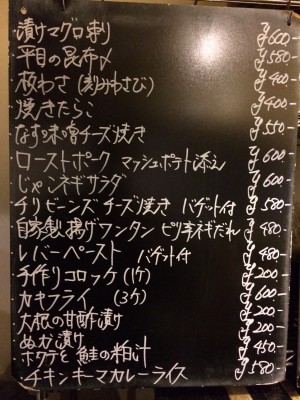 漬けマグロ刺 ¥600-
平目の昆布〆 ¥580-
板わさ（刻みわさび） ¥400-
焼きたらこ ¥400
なす味噌チーズ焼き ¥550-
ローストポーク マッシュポテト添え ¥600-
じゃこネギサラダ ¥600-
チリビーンズチーズ焼き バゲット付 ¥580
自家製揚げワンタン ピリ辛ネギだれ ¥480
レバーペースト バゲット付 ¥480-
手作りコロッケ（1ケ） ¥200-
カキフライ （3ケ） ¥600-
大根の甘酢漬け ¥200-
ぬか漬け ¥200-
ホタテと鮭の粕汁 ¥450-
チキンキーマカレーライス ¥580-